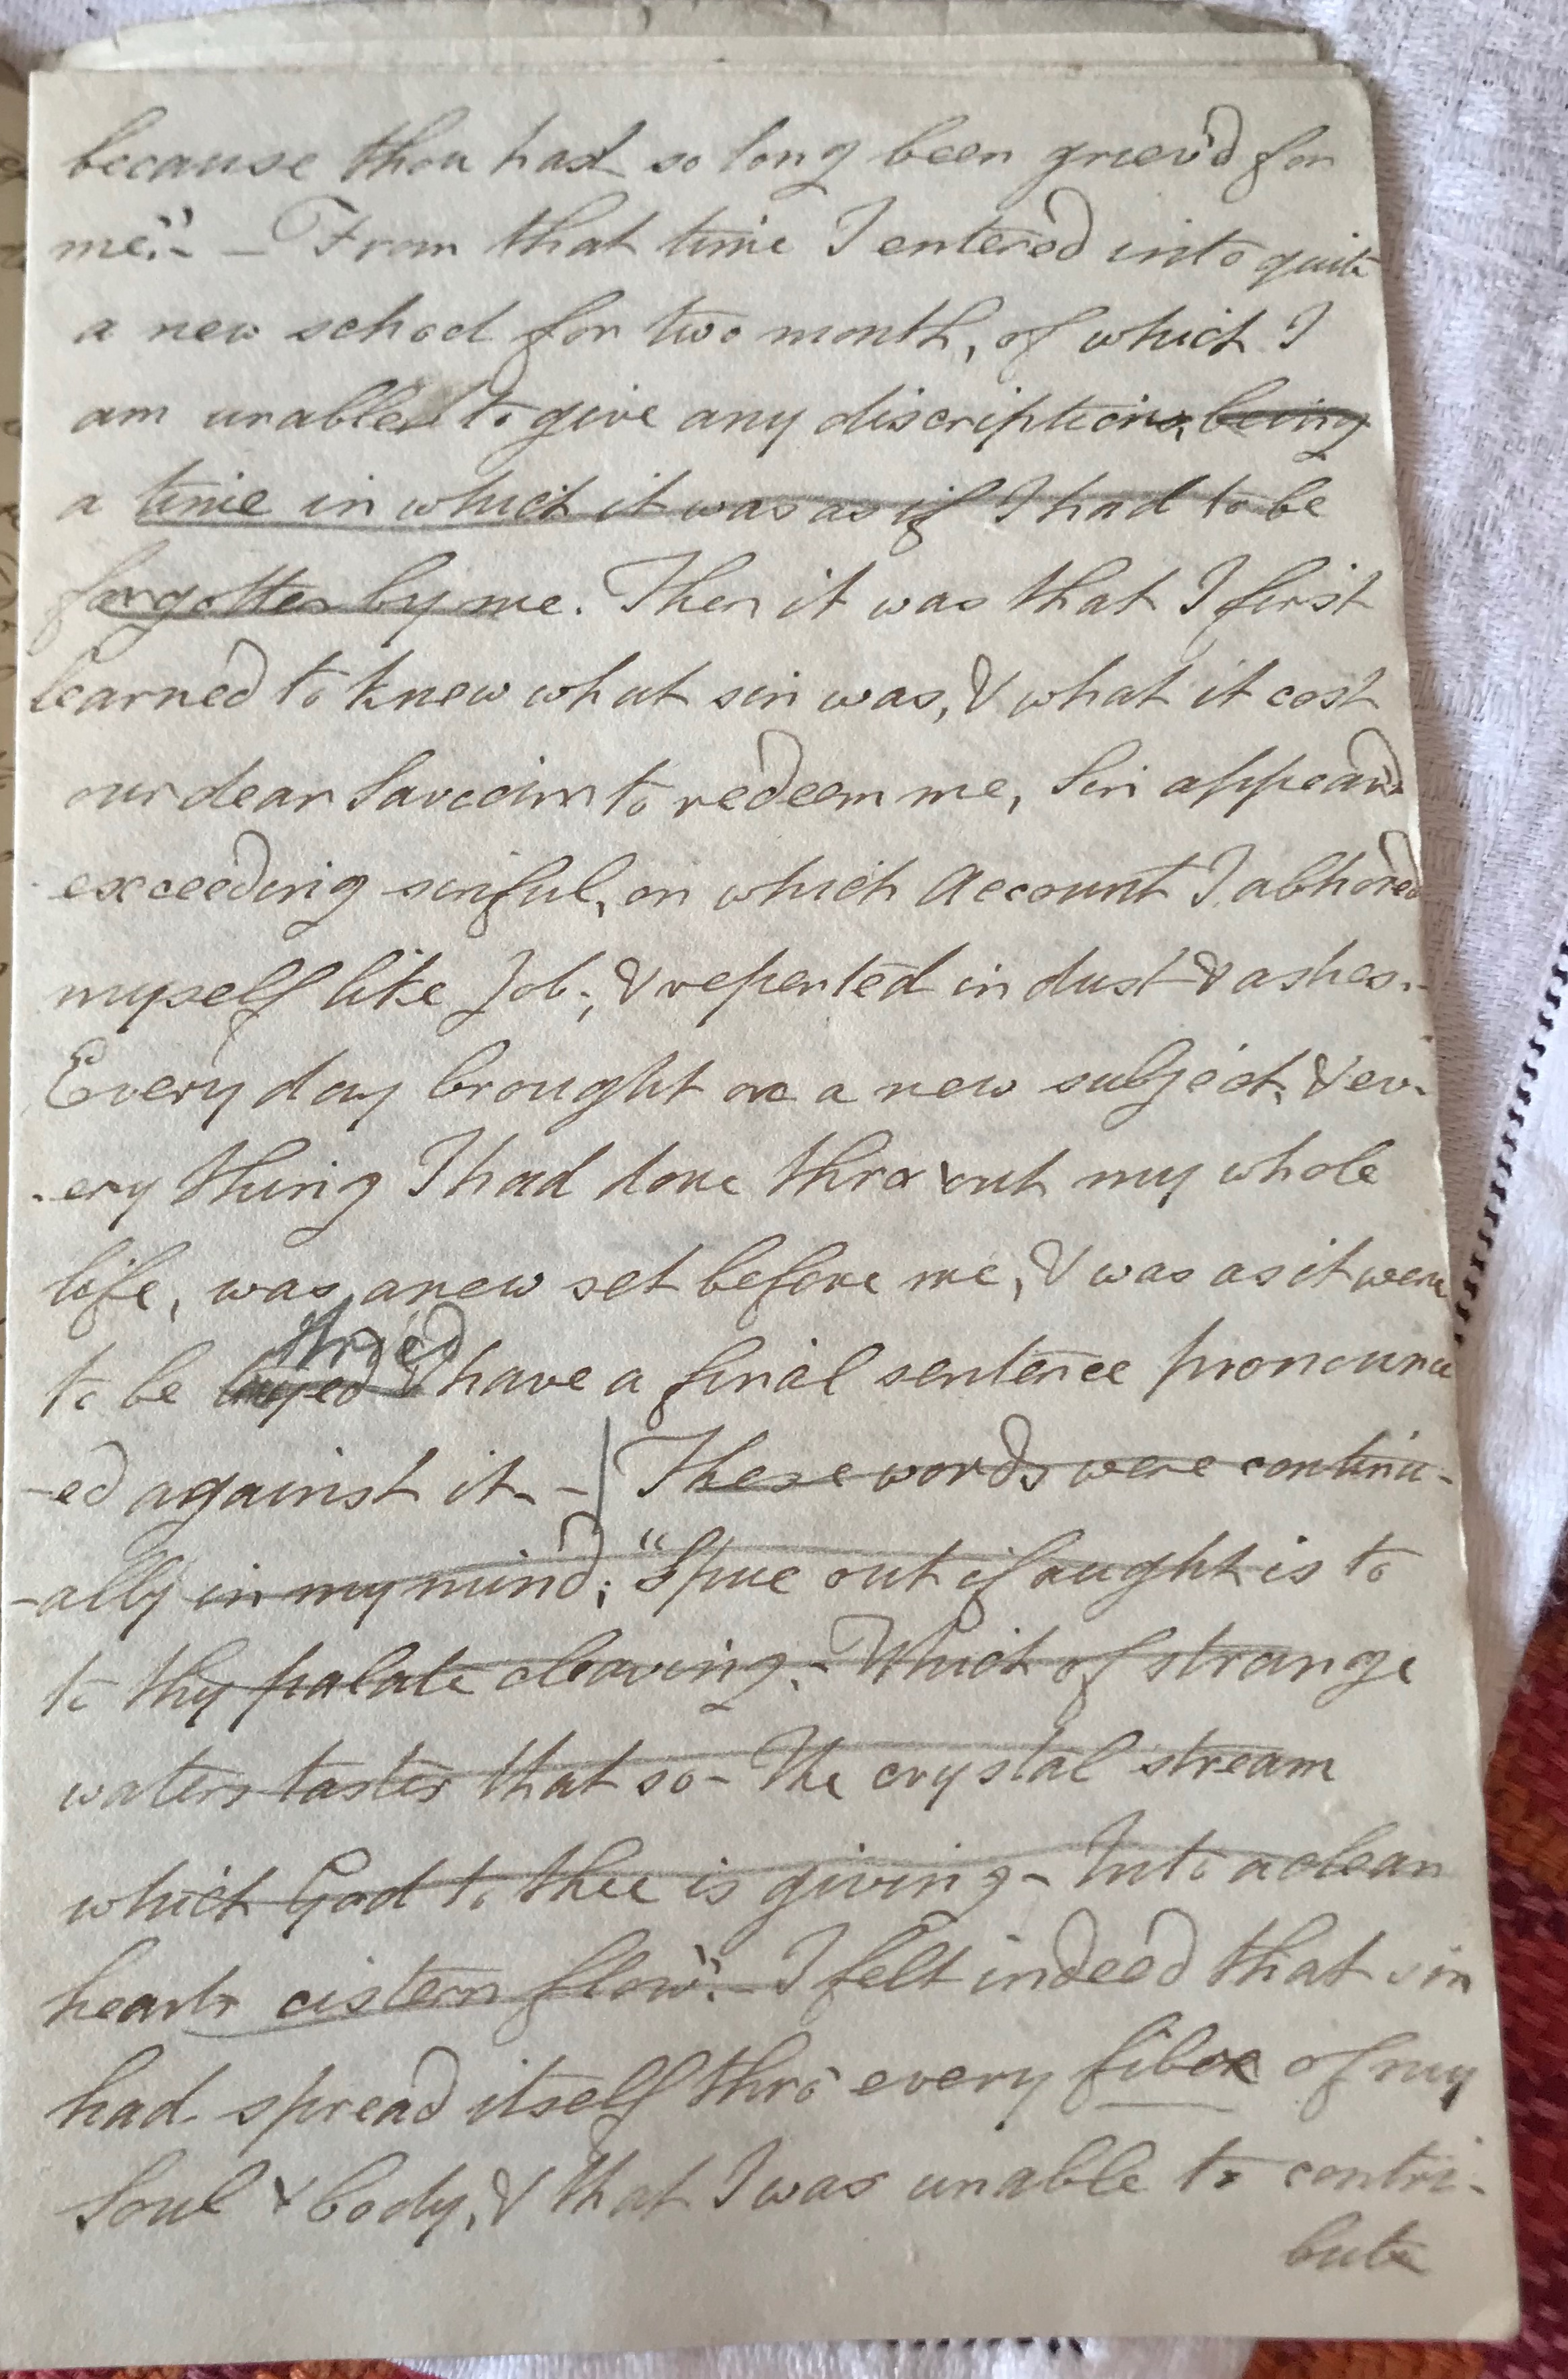 because thou hast so long been griev'd for
me." - — From that time I entered into quite
a new school for two month, of which I
am unable to give any discription, being
a time in which it was as if I had to be
forgotten by me. Then it was that I first
learned to know what sin was, & what it cost
our dear Saviour to redeem me, Sin appear'd
exceeding sinful, on which Account I abhored
myself like Job, & repented in dust & ashes.-
Every day brought on a new subject, & ev-
-ery thing I had done thro'out my whole
life, was anew set before me, & was as it were
tryed
to be & have a final sentence pronounc
-ed against it. - | These words were continu-
-ally in my mind; "Spue out if aught is to
to thy palate cleaving. - Which of strange
waters tastes that so - The crystal stream
which God to thee is giving - Into a clean
hearts cistern flow". - I felt indeed that sin
had spread itself thro' every fibre of my
Soul & body, & that I was unable to contri-
bute